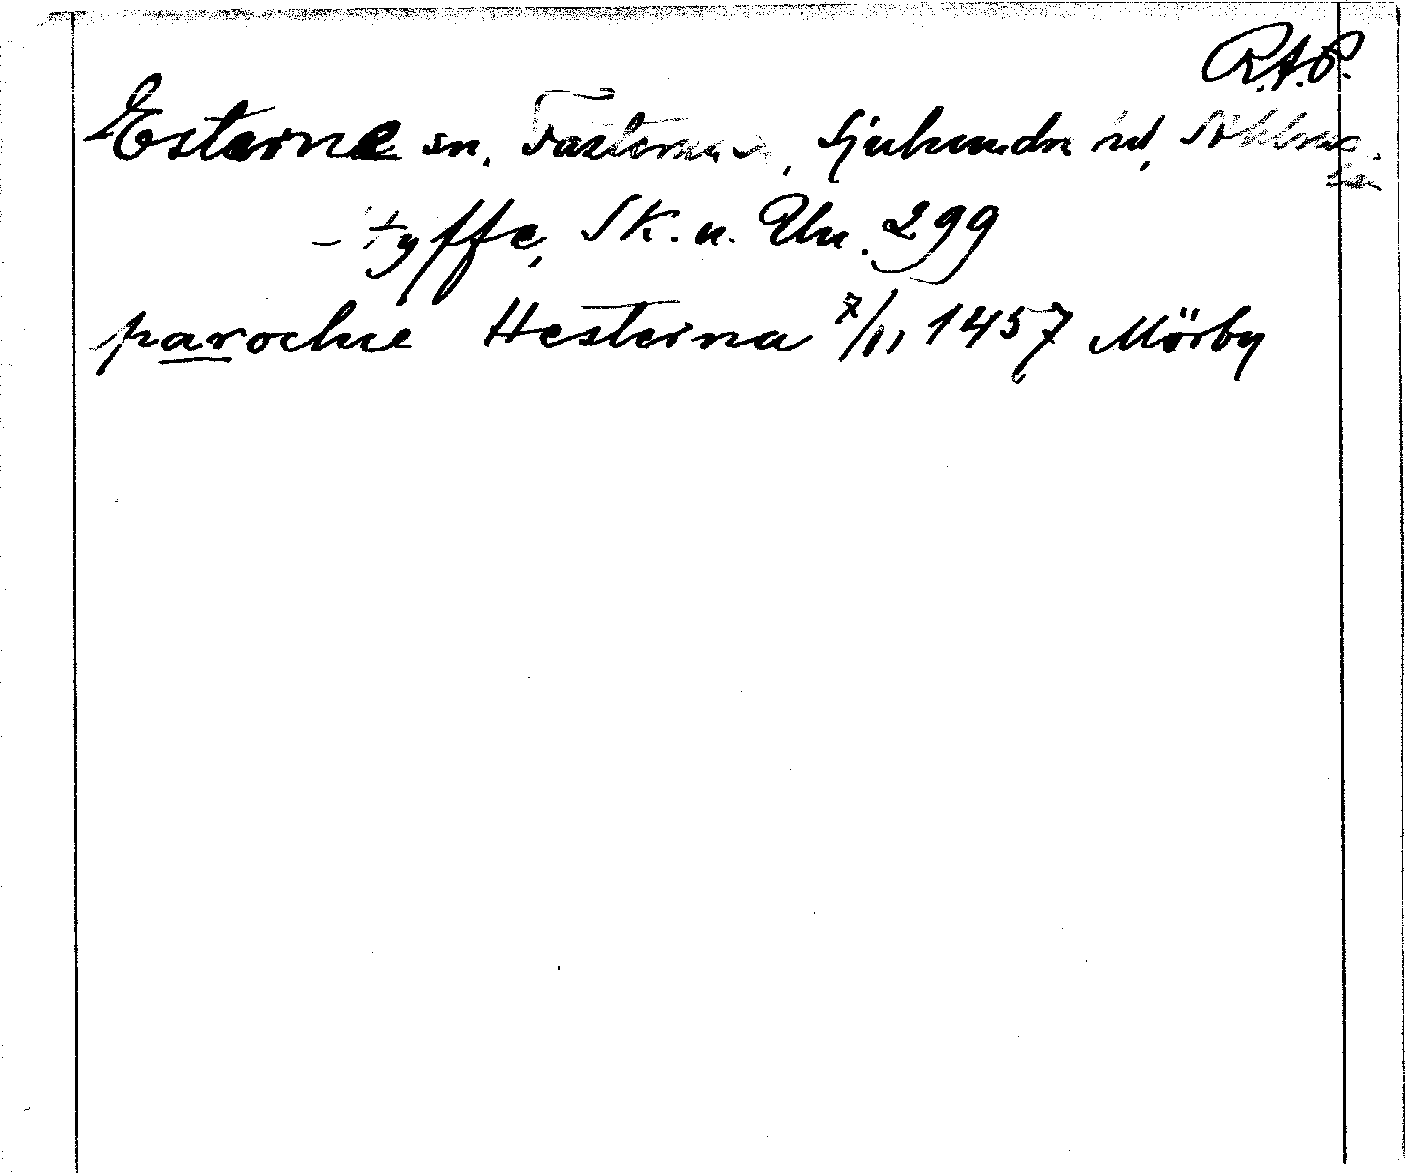 R.A.P.
Esterne sn, Fasterna sn, Sjuhundra hd, Sthlms
län
- Styffe, SK. u. Un. 299
parochie Hesterna 7/11 1457 Mörby